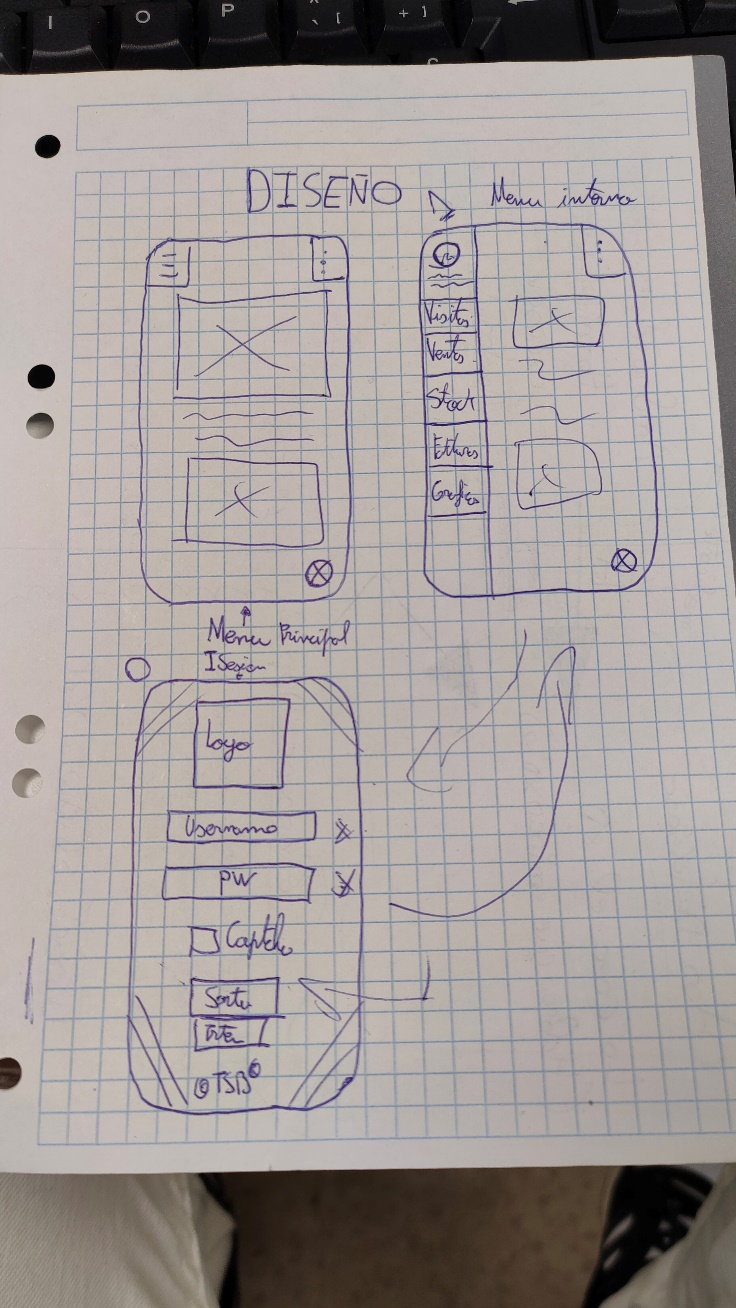 I O P ^ ` [ + ]
DISEÑO
Menu interno
Visitas
Ventas
Stock
Graficos
Menu Principal
ISesion
Logo
Username
PW
Captcha
TSB